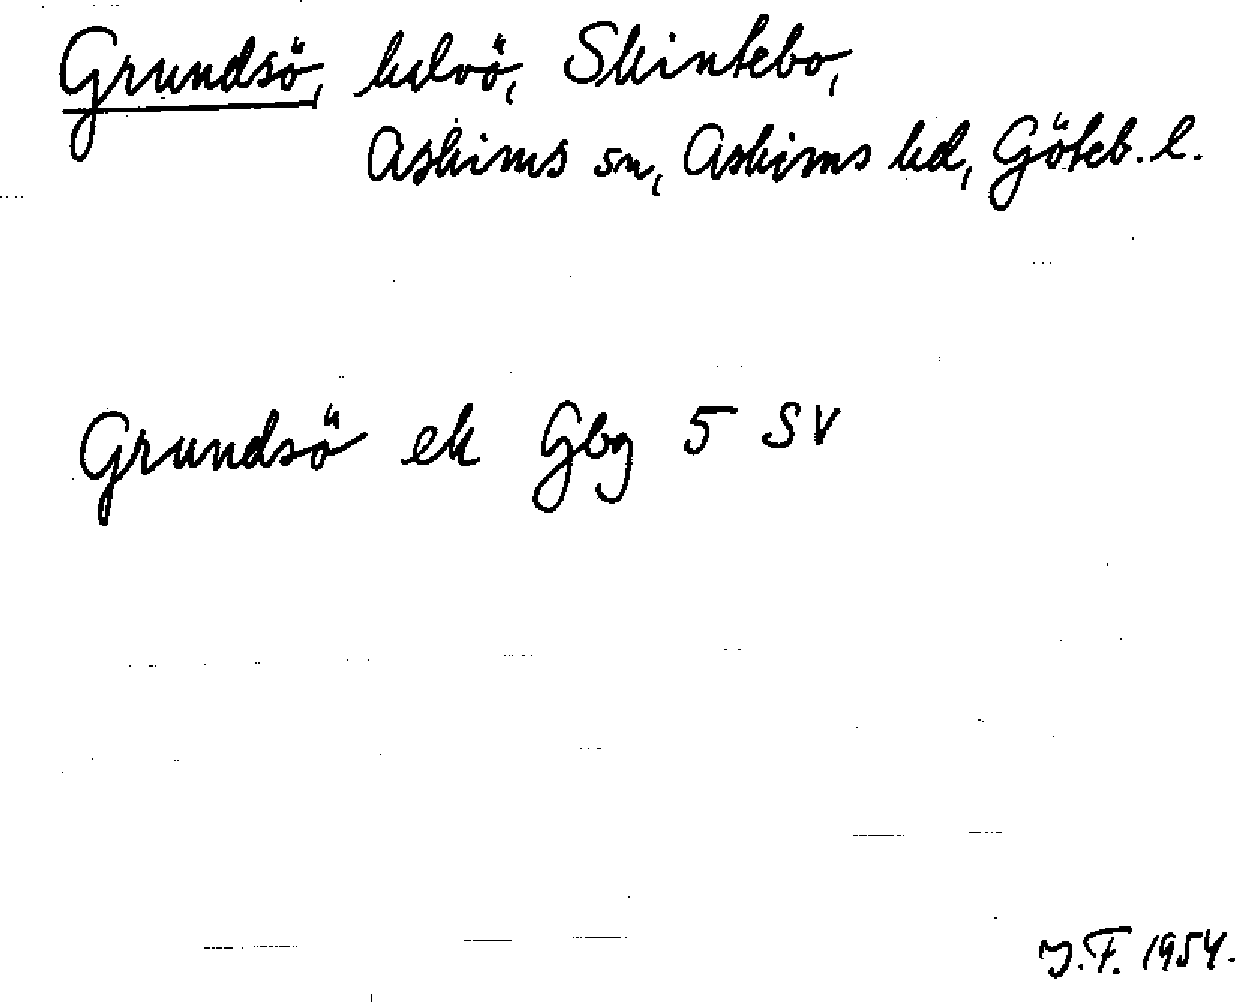 Grundsö, halvö, Skintebo,
Askims sn, Askims hd, Göteb. l.
Grundsö ek Gbg 5 SV
J.F. 1954.